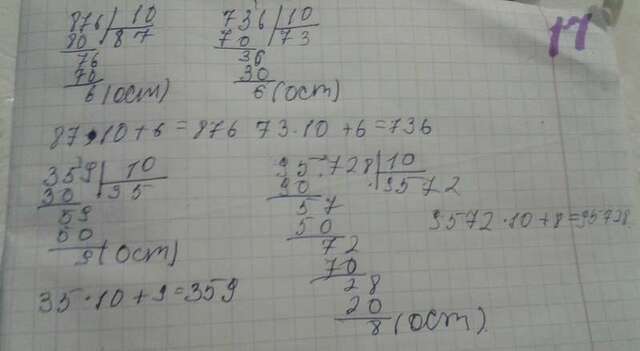 876|10
80 87
76
70
6(ост)
736|10
70 73
36
30
6(ост)
17
87·10+6=876 73·10+6=736
359|10
30 35
59
50
9(ост)
35·10+9=359
95728|10
90 9572
57
50
72
70
28
20
8(ост)
9572·10+8=95728